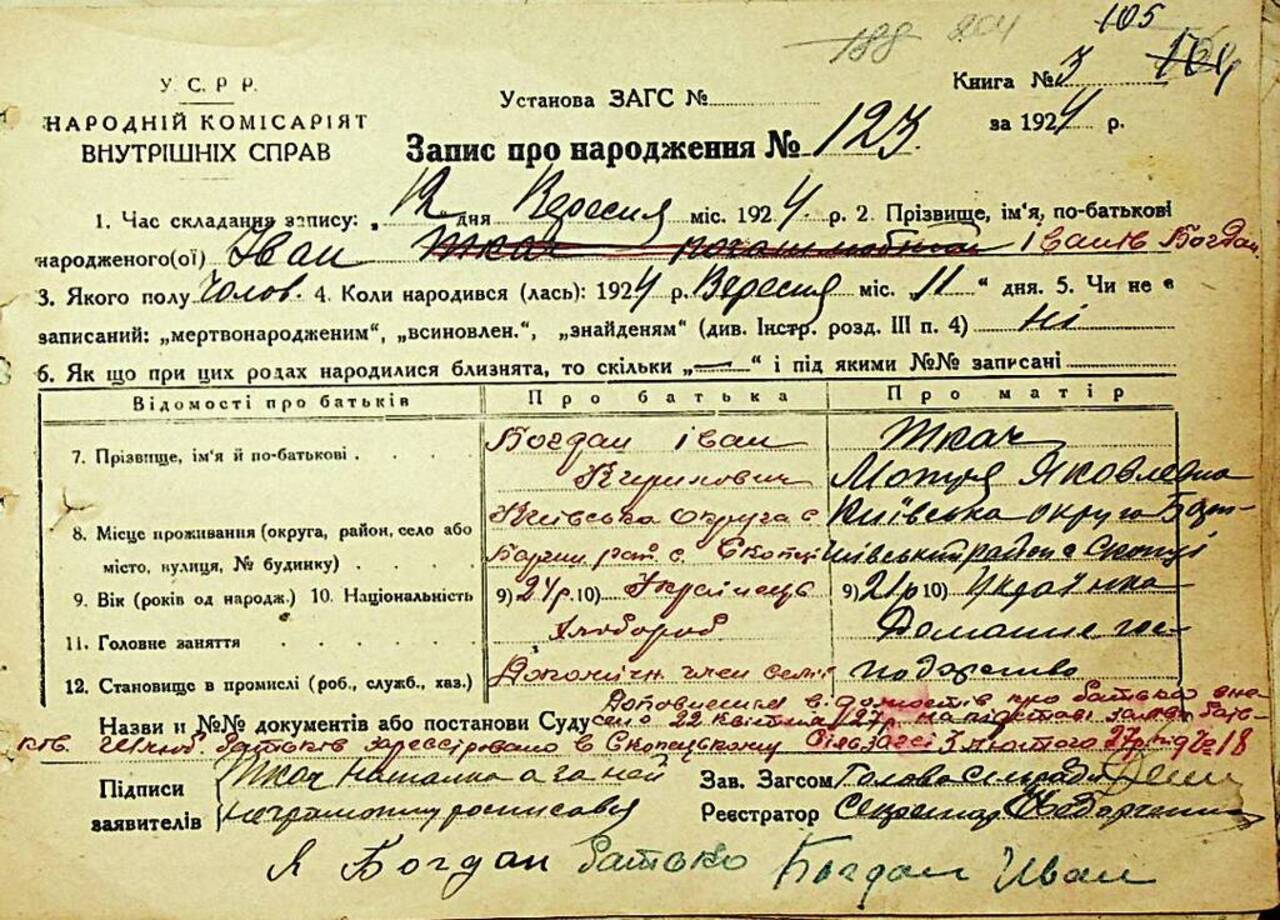 105
188 204
У. С. Р. Р.
НАРОДНІЙ КОМІСАРІЯТ
ВНУТРІШНІХ СПРАВ
Установа ЗАГС №
Книга № 3 104
за 1924 р.
Запис про народження № 123.
1. Час складання запису: „12 дня Вересня міс. 1924 р. 2. Прізвище, ім'я, по-батькові
народженого(ої) Іван Ткач Іванів Богдан
3. Якого полу Чолов. 4. Коли народився (лась): 1924 р. Вересня міс. „11" дня. 5. Чи не є
записаний: „мертвонародженим", „всиновлен.", „знайденям" (див. Інстр. розд. III п. 4) Ні
6. Як що при цих родах народилися близнята, то скільки „—" і під якими №№ записані
Відомості про батьків Про батька Про матір
7. Прізвище, ім'я й по-батькові . . . . Богдан Іван Ткач
Кирилович Мотря Яковлевна
8. Місце проживання (округа, район, село або Київська округа с Київська округа Бари-
місто, вулиця, № будинку) . . . . Бариш рай. с. Скопці шівський район с Скопці
9. Вік (років од народж.) 10. Національність 9) 24 р. 10) Українець 9) 21 р 10) Українка
11. Головне заняття . . . . . Хлібороб Домашнє гос-
12. Становище в промислі (роб., служб., хаз.) Допомічн. член семії подарство
Доповнення відомостів про батька вне-
Назви и №№ документів або постанови Суду сено 22 квітня 27р. на підставі заяви бать-
ків. Шлюб батьків зареєстровано в Скопецькому Сільзагсі 3 лютого 27р. під № 18
Підписи Ткач а за неї Зав. Загсом Голова Сільради
заявителів неграмотну росписався Реєстратор Секретар
Я Богдан батько Богдан Иван